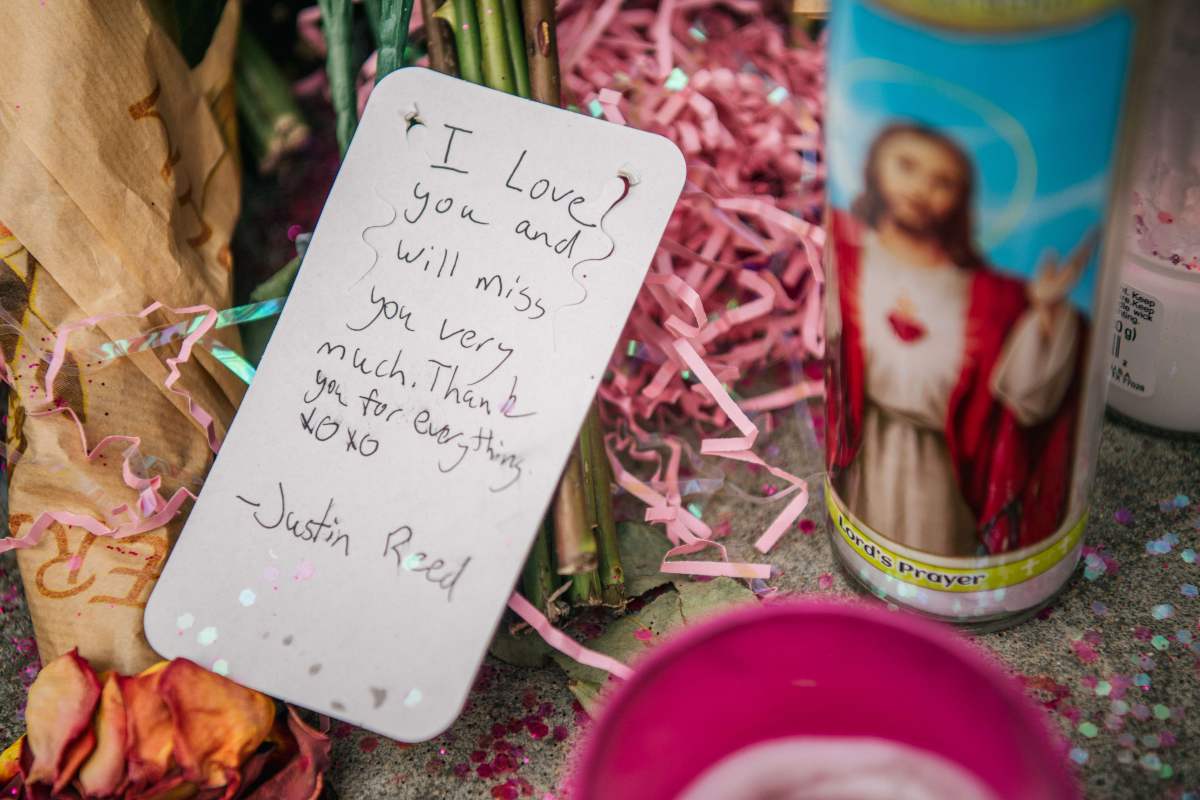 I Love
you and
will miss
you very
much. Thank
you for everything.
XOXO
-Justin Reed
Lord's prayer
Keep
Keep
wick
g)